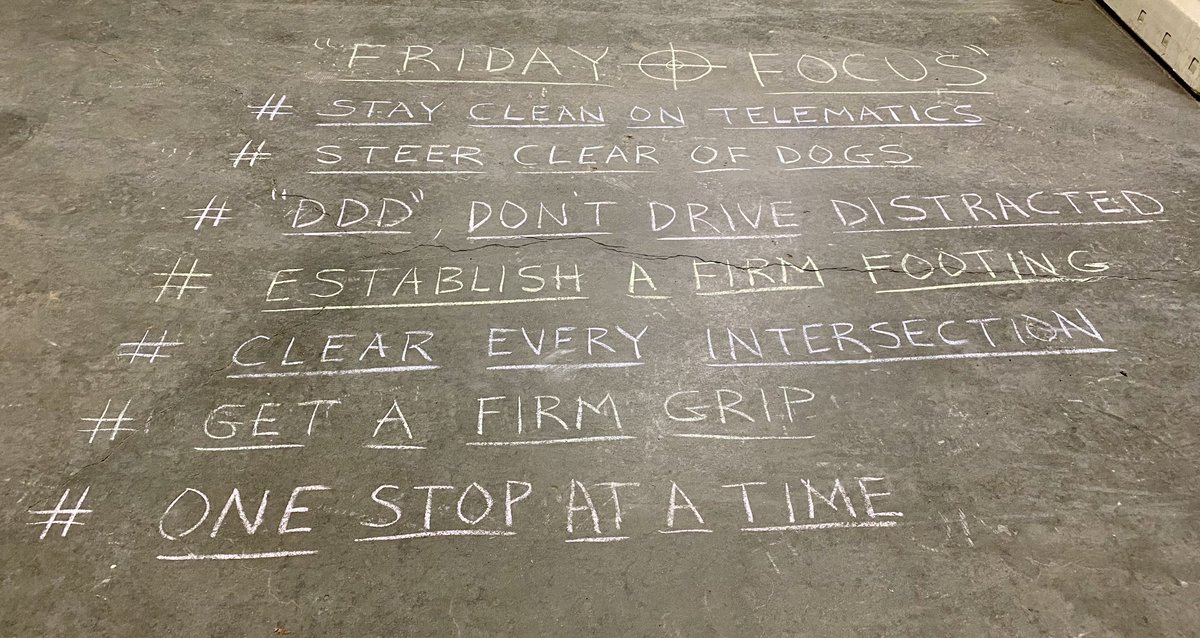 "FRIDAY FOCUS"
# STAY CLEAN ON TELEMATICS
# STEER CLEAR OF DOGS
# "DDD", DON'T DRIVE DISTRACTED
# ESTABLISH A FIRM FOOTING
# CLEAR EVERY INTERSECTION
# GET A FIRM GRIP
# ONE STOP AT A TIME